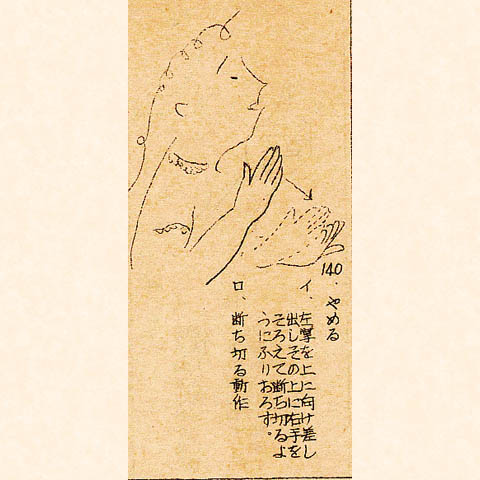 140. やめる
イ、左掌を上に向け差し
出しその上に右手を
そろえて断ち切るよ
うにふりおろす。
ロ、断ち切る動作